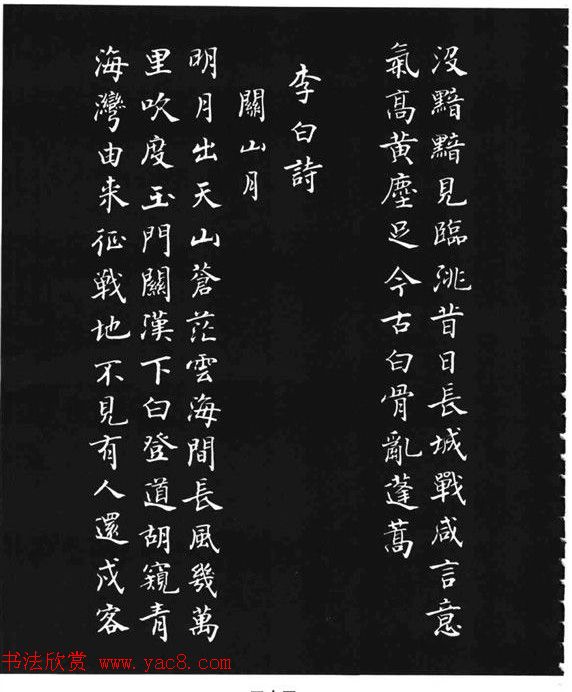 没黯黯見臨洮昔日長城戰咸言意
氣高黃塵足今古白骨亂蓬蒿
李白詩
關山月
明月出天山蒼茫雲海間長風幾萬
里吹度玉門關漢下白登道胡窺青
海灣由来征戰地不見有人還戍客
书法欣赏 www.yac8.com